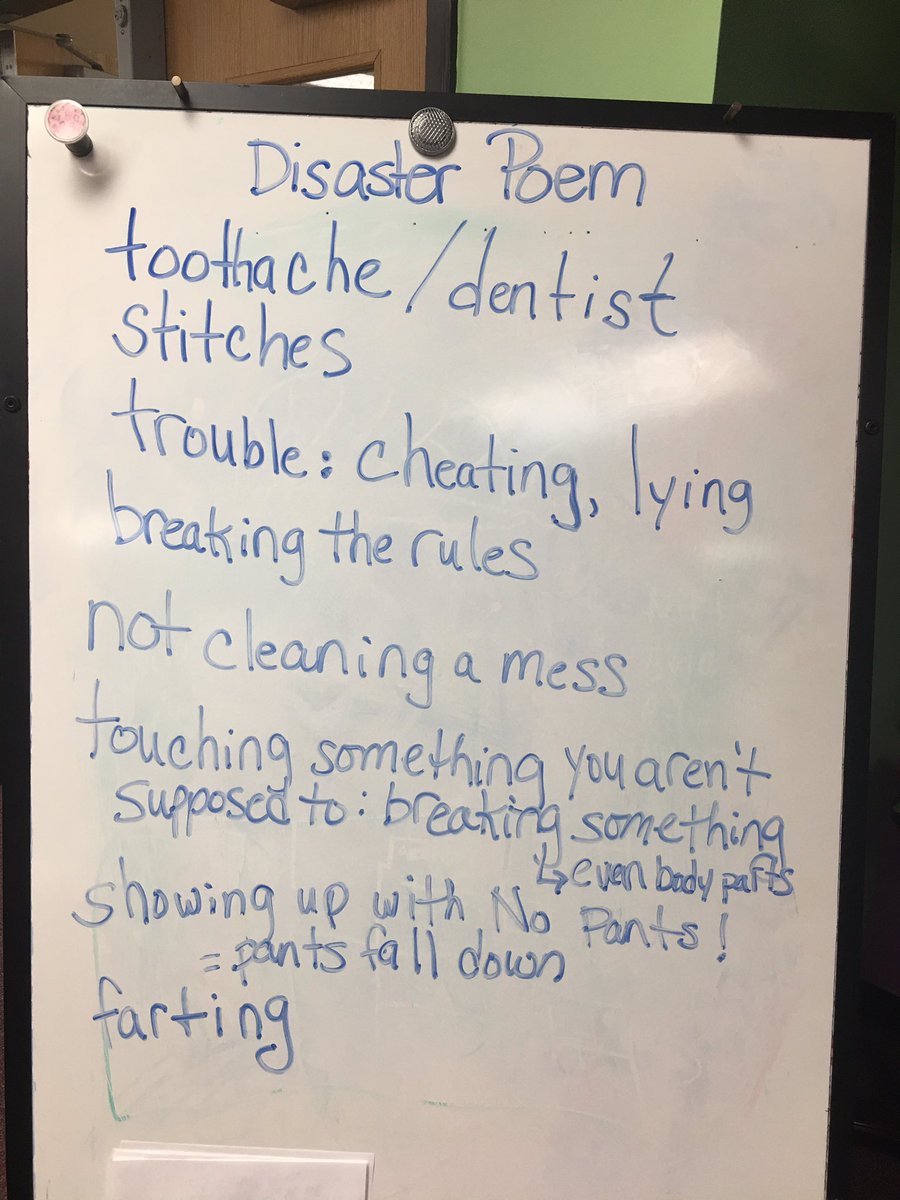 Disaster Poem
toothache/dentist
stitches
trouble: cheating, lying
breaking the rules
not cleaning a mess
touching something you aren't
supposed to: breaking something
↳ even body parts
showing up with No Pants!
= pants fall down
farting